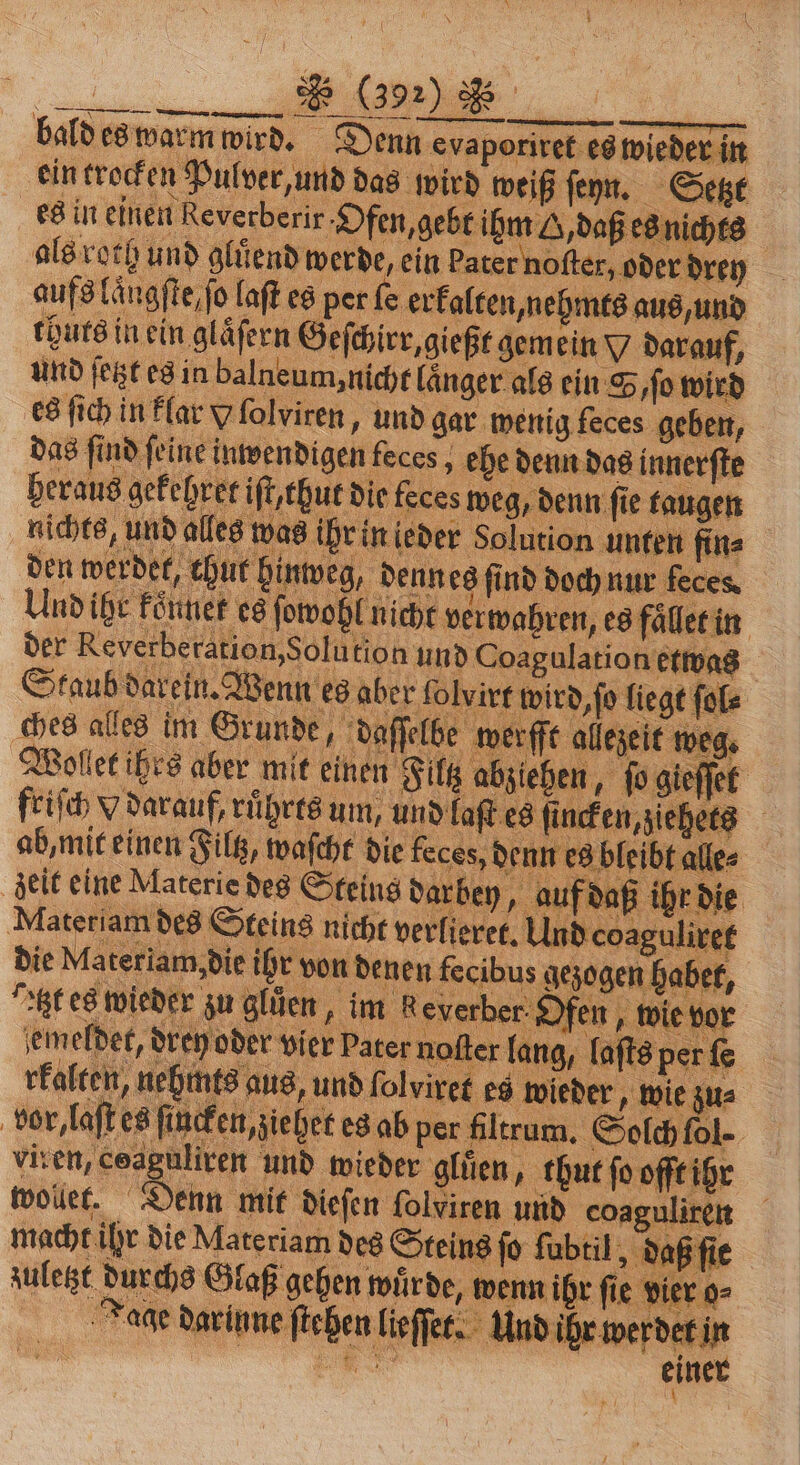 ❧ (392) ❧
bald es warm wird. Denn evaporiret es wieder in
ein trocken Pulver, und das wird weiß ſeyn. Setzt
es in einen Reverberir-Ofen, gebt ihm 🜂, daß es nichts
als roth und gluͤend werde, ein Pater noſter, oder drey
aufs laͤngſte, ſo laſt es per ſe erkalten, nehmts aus, und
thuts in ein glaͤſern Geſchirr, gießt gemein 🜄 darauf,
und ſetzt es in balneum, nicht laͤnger als ein S, ſo wird
es ſich in klar 🜄 ſolviren, und gar wenig feces geben,
das ſind ſeine inwendigen feces, ehe denn das innerſte
heraus gekehret iſt, thut die feces weg, denn ſie taugen
nichts, und alles was ihr in ieder Solution unten fin⸗
den werdet, thut hinweg, denn es ſind doch nur feces.
Und ihr koͤnnet es ſowohl nicht verwahren, es faͤllet in
der Reverberation, Solution und Coagulation etwas
Staub darein. Wenn es aber ſolvirt wird, ſo liegt ſol⸗
ches alles im Grunde, daſſelbe werfft allezeit weg.
Wollet ihrs aber mit einen Filtz abziehen, ſo gieſſet
friſch 🜄 darauf, ruͤhrts um, und laſt es ſincken, ziehets
ab, mit einen Filtz, waſcht die feces, denn es bleibt alle⸗
zeit eine Materie des Steins darbey, auf daß ihr die
Materiam des Steins nicht verlieret. Und coaguliret
die Materiam, die ihr von denen fecibus gezogen habet,
ſetzt es wieder zu gluͤen, im Reverber-Ofen, wie vor
gemeldet, drey oder vier Pater noſter lang, laſts per ſe
erkalten, nehmts aus, und ſolviret es wieder, wie zu⸗
vor, laſt es ſincken, ziehet es ab per filtrum. Solch ſol-
viren, coaguliren und wieder gluͤen, thut ſo offt ihr
wollet. Denn mit dieſen ſolviren und coaguliren
macht ihr die Materiam des Steins ſo ſubtil, daß ſie
zuletzt durchs Glaß gehen wuͤrde, wenn ihr ſie vier o⸗
Tage darinne ſtehen lieſſet. Und ihr werdet in
einer